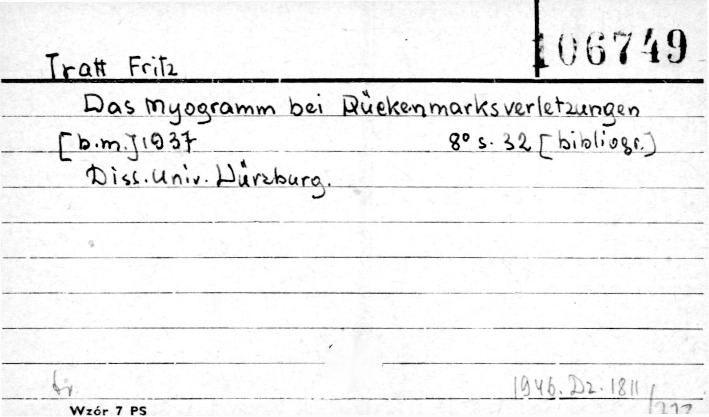 106749
Tratt Fritz
Das Myogramm bei Rückenmarksverletzungen
[b.m.] 1937 8° s. 32 [bibliogr.]
Diss. Univ. Würzburg.
1946. Dz. 1811
Wzór 7 PS